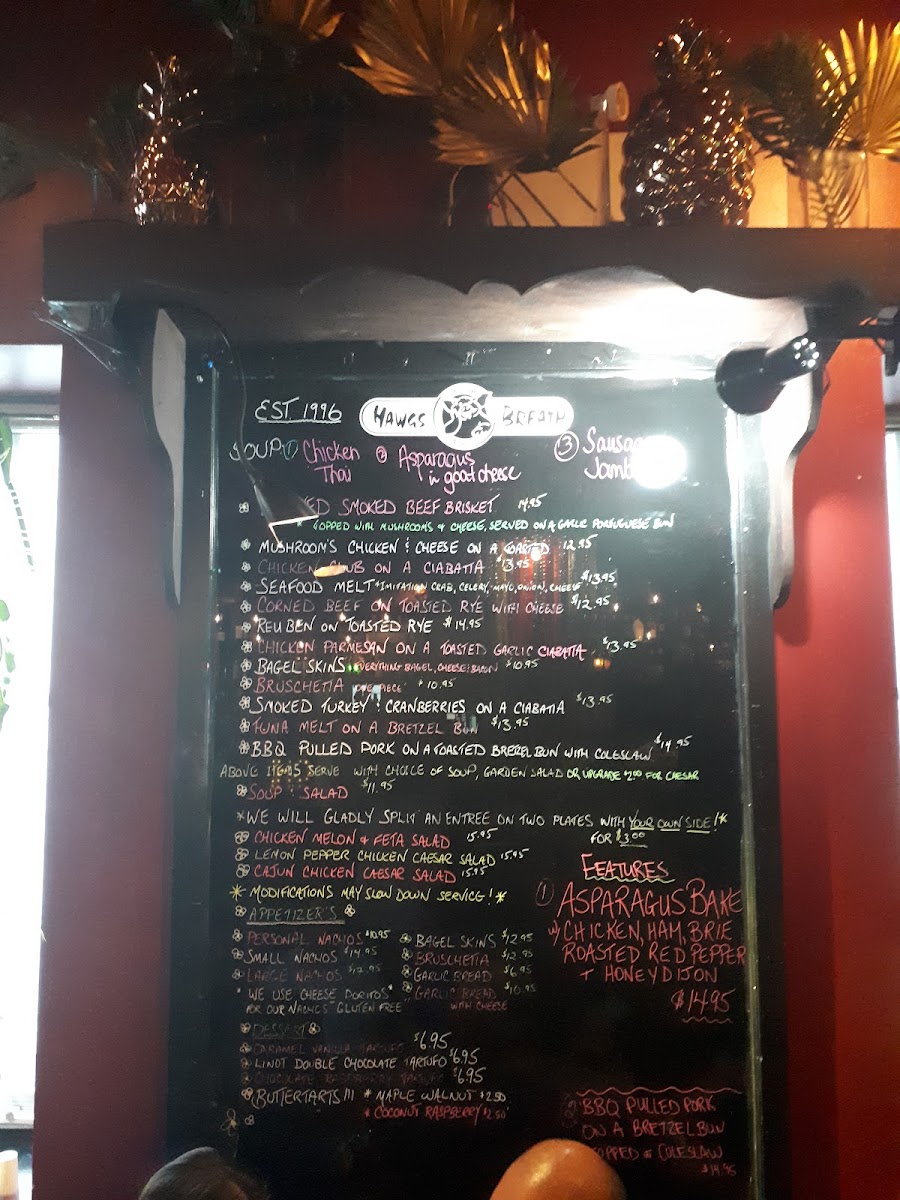 EST. 1996 HAWGS BREATH
SOUP ① Chicken Thai
② Asparagus in goat cheese
③
SMOKED BEEF BRISKET 14.95
* TOPPED WITH MUSHROOM'S & CHEESE, SERVED ON A GARLIC PORTUGUESE BUN
MUSHROOM'S CHICKEN & CHEESE ON A TOASTED 12.95
CHICKEN CLUB ON A CIABATTA $13.95
SEAFOOD MELT *IMITATION CRAB, CELERY, MAYO, ONION, CHEESE $13.95
CORNED BEEF ON TOASTED RYE WITH CHEESE $12.95
REUBEN ON TOASTED RYE $14.95
CHICKEN PARMESAN ON A TOASTED GARLIC CIABATTA $13.95
BAGEL SKINS EVERYTHING BAGEL, CHEESE, BACON $10.95
BRUSCHETTA 10.95
SMOKED TURKEY & CRANBERRIES ON A CIABATTA $13.95
TUNA MELT ON A BRETZEL BUN $13.95
BBQ PULLED PORK ON A TOASTED BREZEL BUN WITH COLESLAW $14.95
ABOVE ITEMS SERVE WITH CHOICE OF SOUP, GARDEN SALAD OR UPGRADE $2.00 FOR CAESAR
SOUP & SALAD $11.95
*WE WILL GLADLY SPLIT AN ENTREE ON TWO PLATES WITH YOUR OWN SIDE!*
FOR $3.00
CHICKEN MELON & FETA SALAD 15.95
LEMON PEPPER CHICKEN CAESAR SALAD 15.95
CAJUN CHICKEN CAESAR SALAD 15.95
* MODIFICATIONS MAY SLOW DOWN SERVICE! *
APPETIZER'S
PERSONAL NACHOS $10.95
SMALL NACHOS $14.95
LARGE NACHOS
* WE USE CHEESE DORITOS *
FOR OUR NACHOS GLUTEN FREE
BAGEL SKINS $12.95
BRUSCHETTA $12.95
GARLIC BREAD $6.95
GARLIC BREAD $10.95
WITH CHEESE
DESSERT
CARAMEL VANILLA TARTUFO $6.95
LINDT DOUBLE CHOCOLATE TARTUFO $6.95
CHOCOLATE RASPBERRY $6.95
BUTTERTARTS !!! * MAPLE WALNUT $2.50
* COCONUT RASPBERRY $2.50
FEATURES
① ASPARAGUS BAKE
W/ CHICKEN, HAM, BRIE
ROASTED RED PEPPER
+ HONEY DIJON
$14.95
② BBQ PULLED PORK
ON A BRETZEL BUN
TOPPED W COLESLAW
$14.95